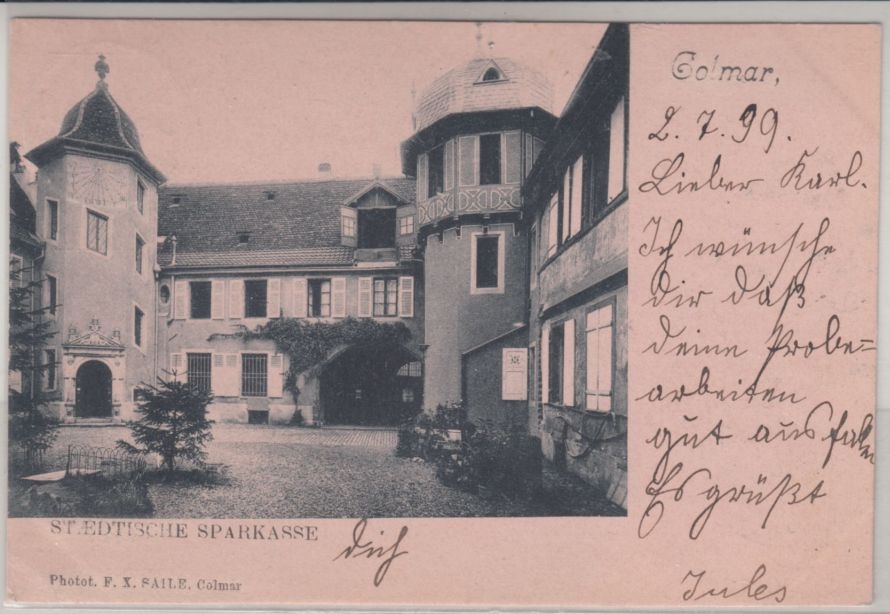 Colmar,
2. 7. 99.
Lieber Karl.
Ich wünsche
dir daß
deine Probe=
arbeiten
gut ausfalen
Es grüßt
dich
Jules
STÆDTISCHE SPARKASSE
Photot. F. X. SAILE, Colmar